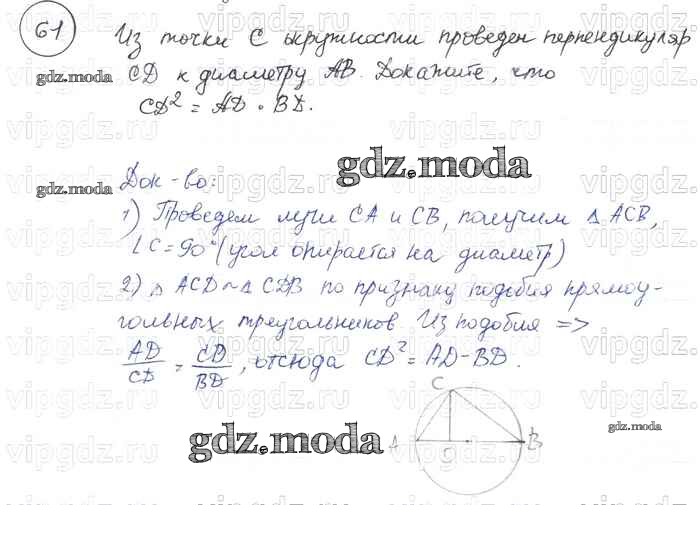 61
Из точки С окружности проведен перпендикуляр
CD к диаметру AB. Докажите, что
CD² = AD · BD.
gdz.moda
gdz.moda
gdz.moda
Док-во:
1) Проведем лучи CA и CB, получим △ ACB,
∠C = 90° (угол опирается на диаметр)
2) △ ACD ~ △ CDB по признаку подобия прямоу-
гольных треугольников Из подобия =>
AD/CD = CD/BD, отсюда CD² = AD - BD.
C
A D B
gdz.moda
gdz.moda
vipgdz.ru